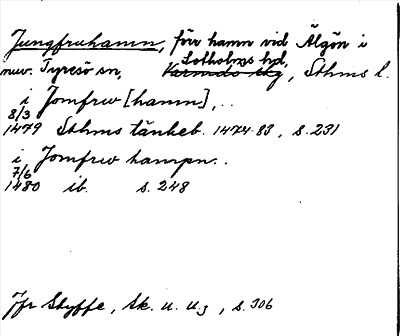 Jungfruhamn, förr hamn vid Älgön i
Sotholms hd,
nuv. Tyresö sn, Värmdö skg, Sthms l.
i Jomfrw [hamn], ..
8/3
1479 Sthms tänkeb. 1474-83, s. 231
i Jomfrw hampn..
7/6
1480 ib. s. 248
Jfr Styffe, Sk. u. u.3, s. 306